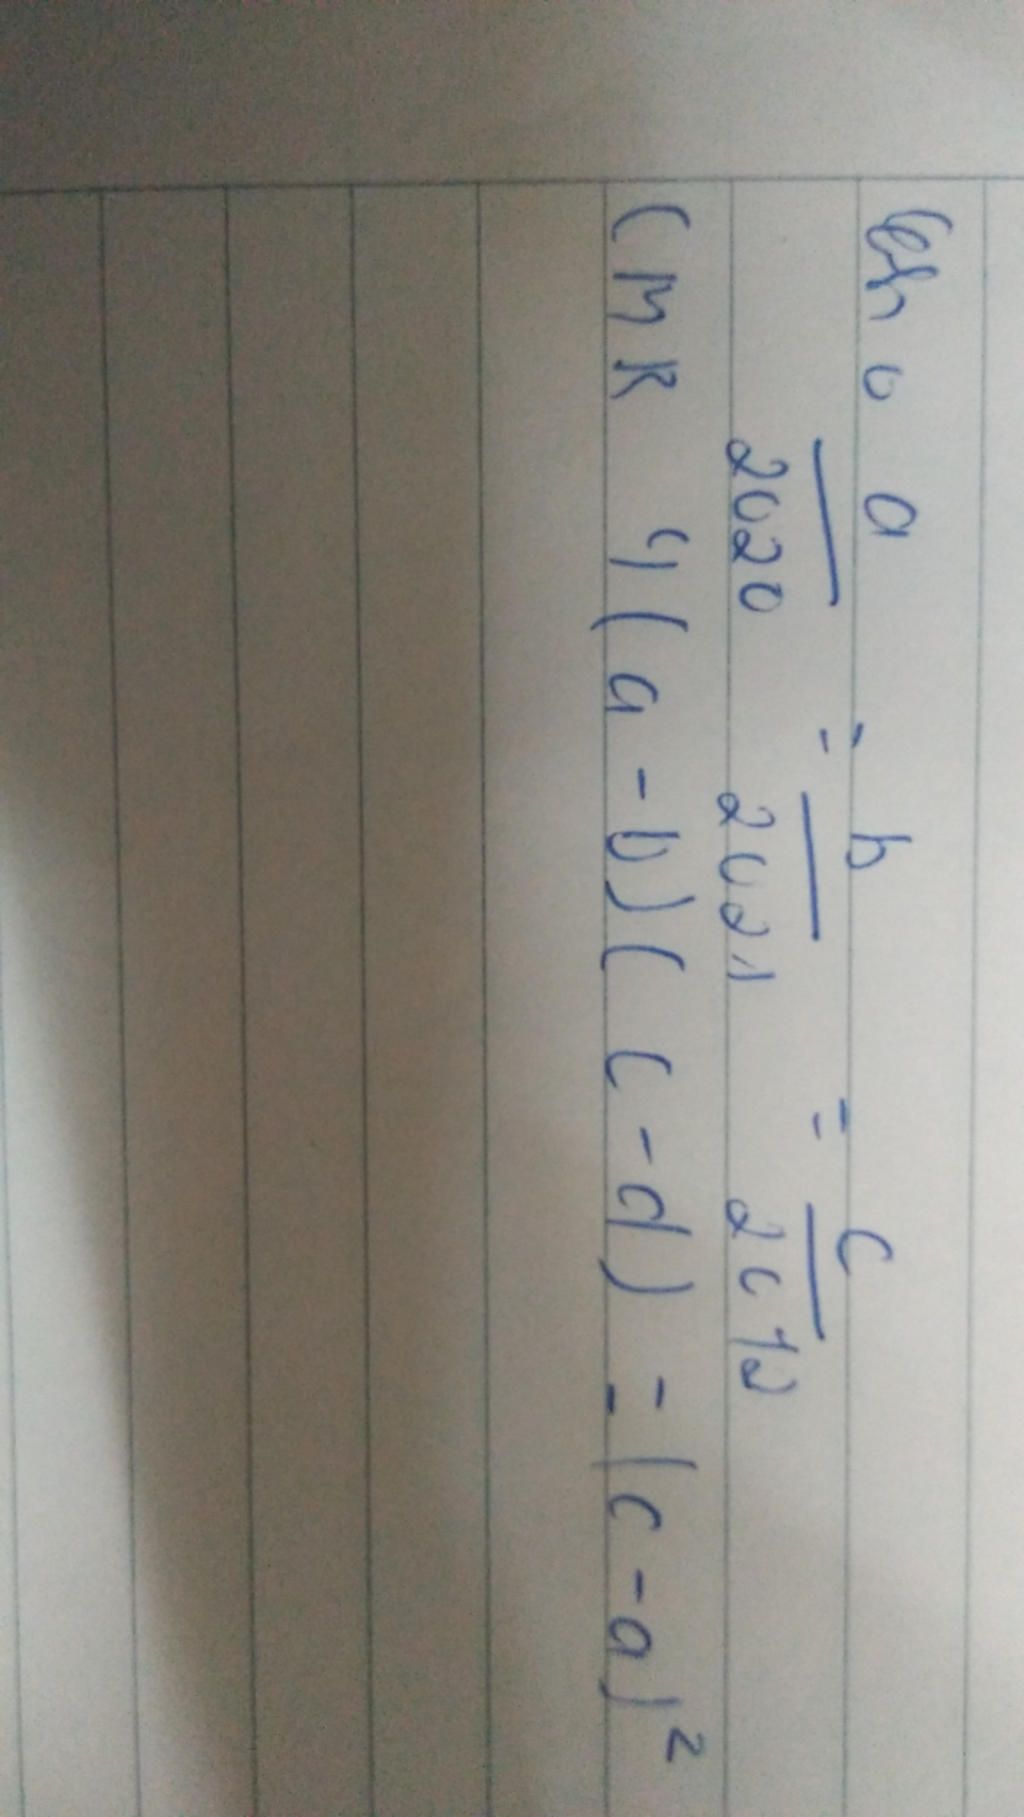 Cho a/2020 = b/2021 = c/2022
CMR 4(a-b)(c-d) = (c-a)²